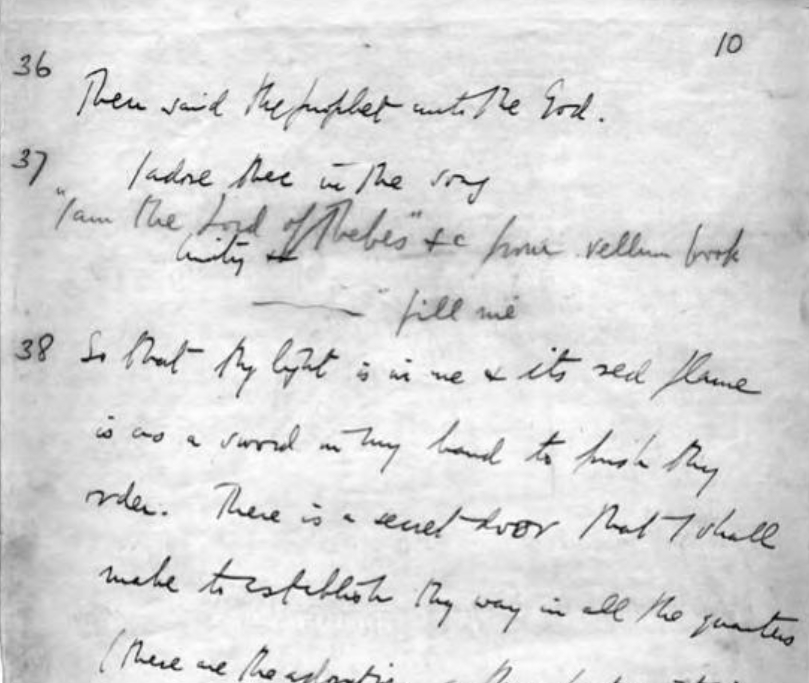 10
36
Then said the prophet unto the God.
37 I adore thee in the song
"I am the Lord of Thebes" &c from vellum book
Unity &c
——— " fill me
38 So that thy light is in me & its red flame
is as a sword in my hand to push thy
order. There is a secret door that I shall
make to establish thy way in all the quarters
(these are the adorations